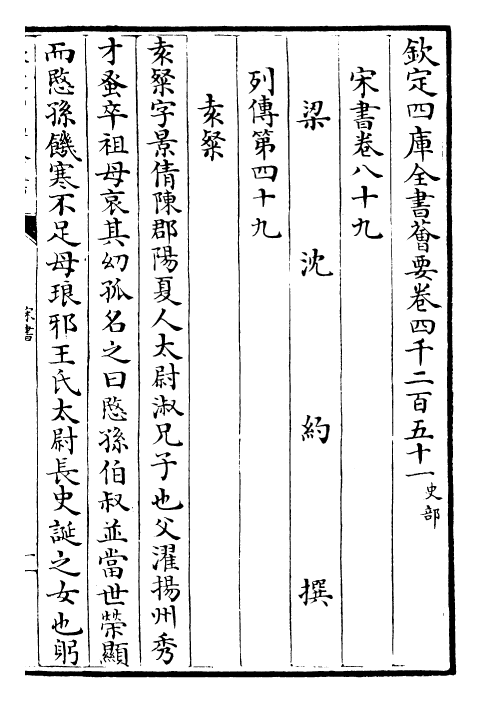 欽定四庫全書薈要卷四千二百五十一史部
宋書卷八十九
梁沈約撰
列傳第四十九
袁粲
袁粲字景倩陳郡陽夏人太尉淑兄子也父濯揚州秀
才蚤卒祖母哀其幼孤名之曰愍孫伯叔並當世榮顯
而愍孫饑寒不足母琅邪王氏太尉長史誕之女也躬
宋書
一